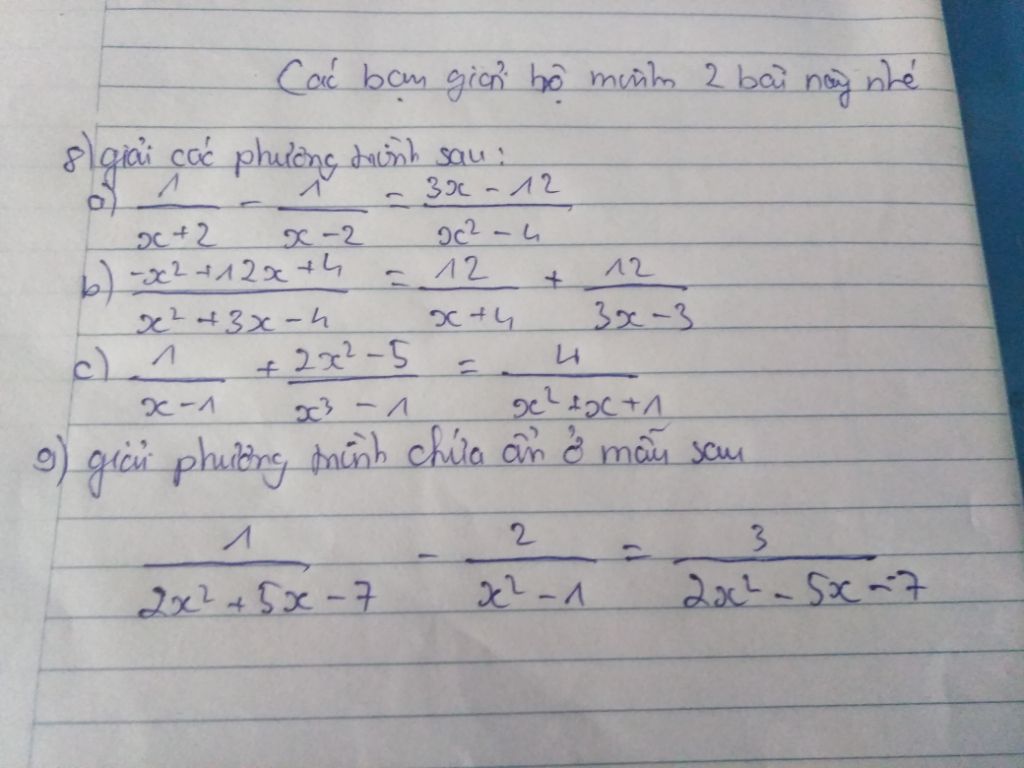 Các bạn giải hộ mình 2 bài này nhé
8) giải các phương trình sau:
a) 1/(x+2) - 1/(x-2) = (3x-12)/(x²-4)
b) (-x²+12x+4)/(x²+3x-4) = 12/(x+4) + 12/(3x-3)
c) 1/(x-1) + (2x²-5)/(x³-1) = 4/(x²+x+1)
9) giải phương trình chứa ẩn ở mẫu sau
1/(2x²+5x-7) - 2/(x²-1) = 3/(2x²-5x-7)